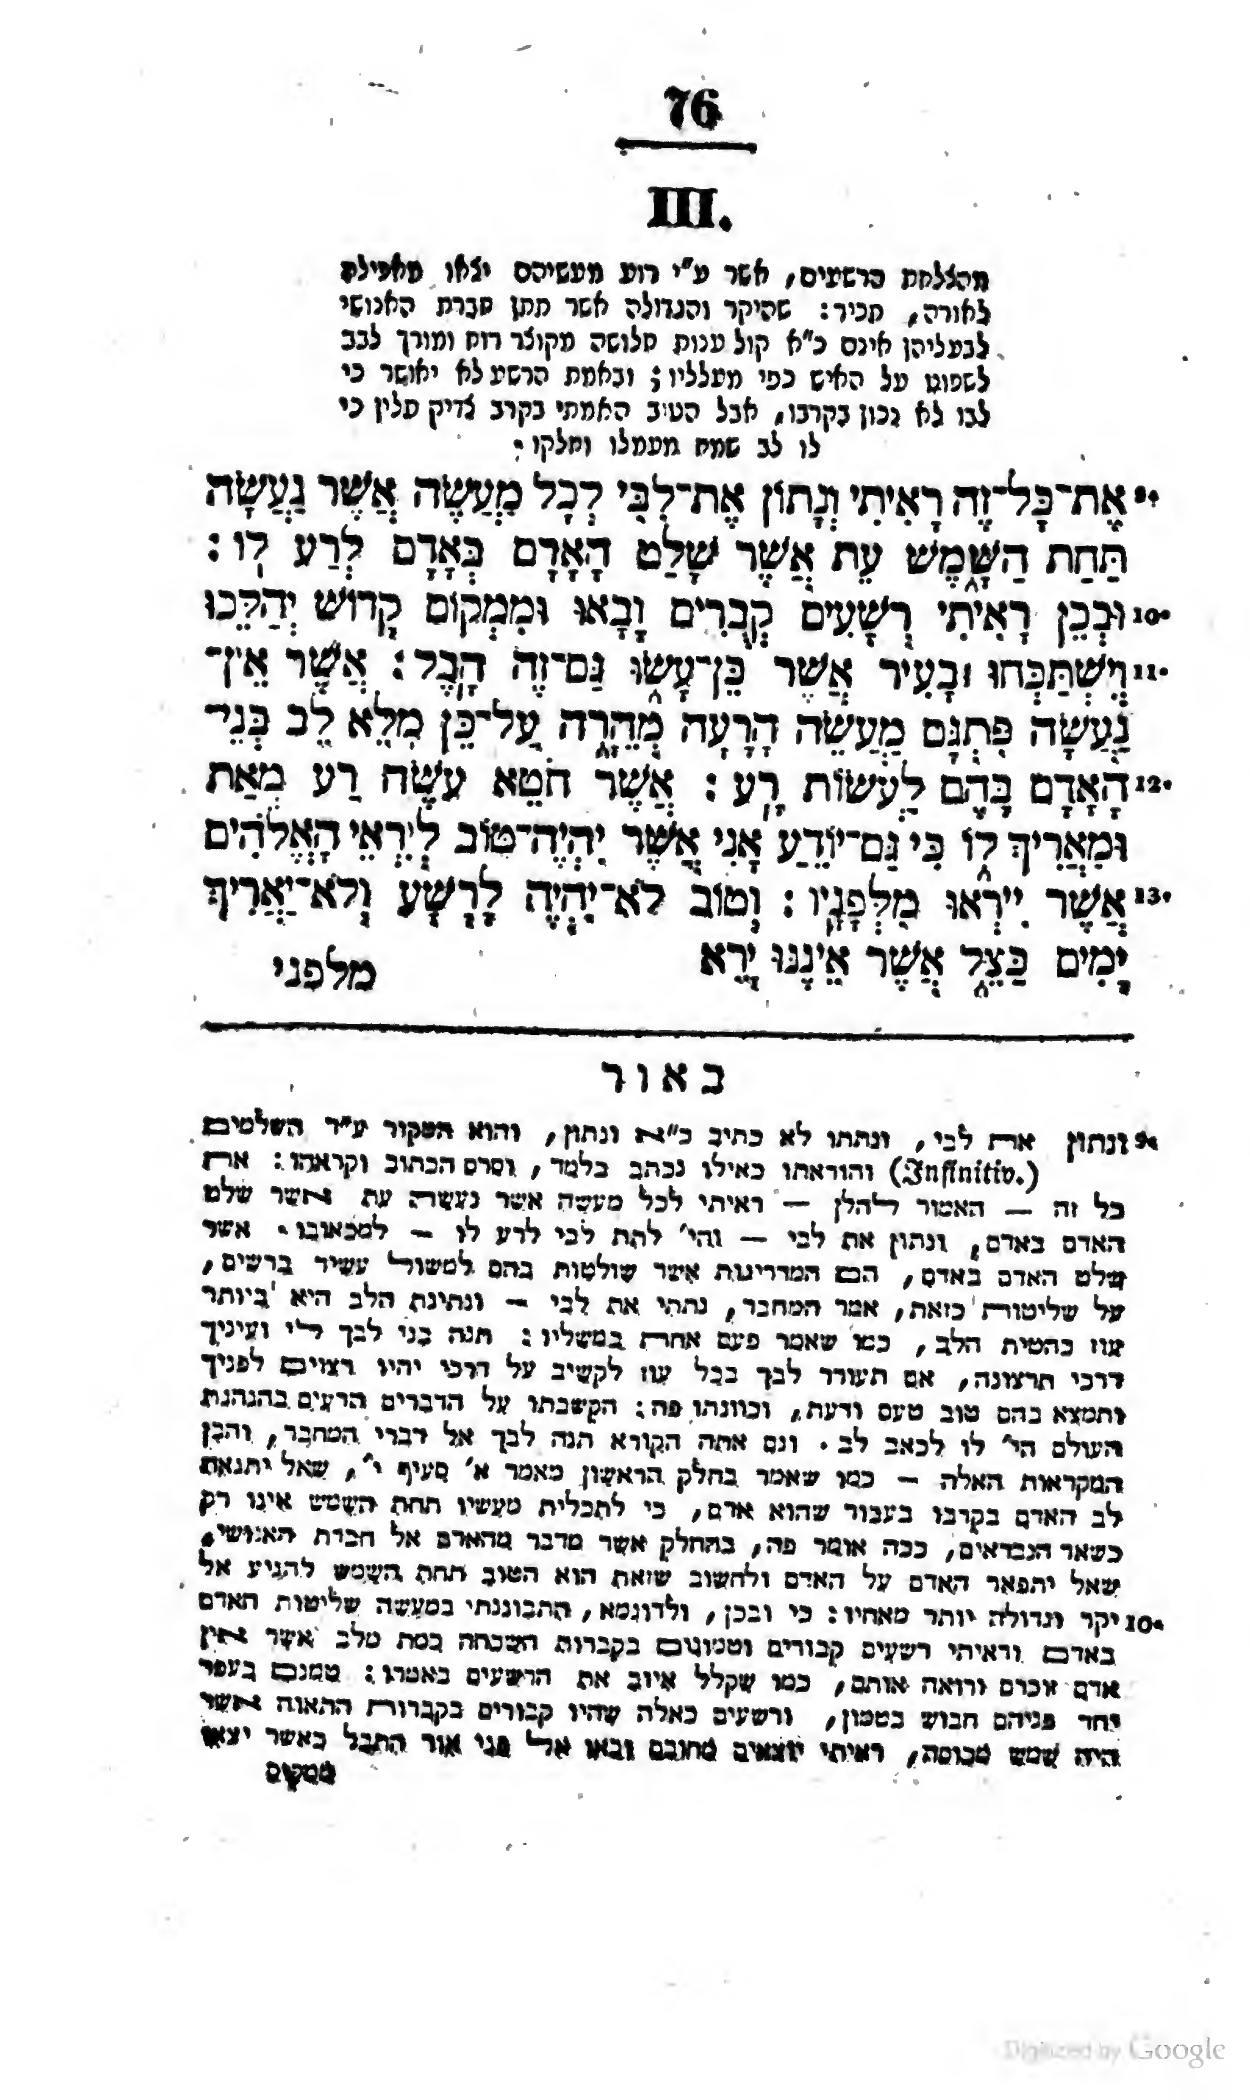 76
III.
מהצלחת הרשעים, אשר ע"י רוע מעשיהם יצאו מאפילה
לאורה, תכיר: שהיקר והגדולה אשר תתן חברת האנושי
לבעליהן אינם כ"א קול ענות חלושה מקוצר רוח ומורך לבב
לשפוט על האיש כפי מעלליו; ובאמת הרשע לא יאושר כי
לבו לא נכון בקרבו, אבל הטוב האמתי בקרב צדיק תלין כי
לו לב שמח מעמלו וחלקו.
9. אֶת־כָּל־זֶה רָאִיתִי וְנָתוֹן אֶת־לִבִּי לְכָל מַעֲשֶׂה אֲשֶׁר נַעֲשָׂה
תַּחַת הַשָּׁמֶשׁ עֵת אֲשֶׁר שָׁלַט הָאָדָם בְּאָדָם לְרַע לוֹ:
10. וּבְכֵן רָאִיתִי רְשָׁעִים קְבֻרִים וָבָאוּ וּמִמְּקוֹם קָדוֹשׁ יְהַלֵּכוּ
11. וְיִשְׁתַּכְּחוּ בָעִיר אֲשֶׁר כֵּן־עָשׂוּ גַּם־זֶה הָבֶל: אֲשֶׁר אֵין־
נַעֲשָׂה פִתְגָם מַעֲשֵׂה הָרָעָה מְהֵרָה עַל־כֵּן מָלֵא לֵב בְּנֵי־
12. הָאָדָם בָּהֶם לַעֲשׂוֹת רָע: אֲשֶׁר חֹטֶא עֹשֶׂה רַע מְאַת
וּמַאֲרִיךְ לוֹ כִּי גַּם־יוֹדֵעַ אָנִי אֲשֶׁר יִהְיֶה־טּוֹב לְיִרְאֵי הָאֱלֹהִים
13. אֲשֶׁר יִירְאוּ מִלְּפָנָיו: וְטוֹב לֹא־יִהְיֶה לָרָשָׁע וְלֹא־יַאֲרִיךְ
יָמִים כַּצֵּל אֲשֶׁר אֵינֶנּוּ יָרֵא
מלפני
באור
9. ונתון את לבי, ונתתו לא כתיב כ"א ונתון, והוא המקור ע"ד השלמים
(Infinitiv.) והוראתו כאילו נכתב בלמד, וסרס הכתוב וקראהו: את
כל זה — האמור להלן — ראיתי לכל מעשה אשר נעשה עת אשר שלט
האדם באדם, ונתון את לבי — והי' לתת לבי לרע לו — למכאובו. אשר
שלט האדם באדם, הם המדריגות אשר שולטות בהם למשול עשיר ברשים,
על שליטות כזאת, אמר המחבר, נתתי את לבי — ונתינת הלב היא ביותר
עוז כהטית הלב, כמו שאמר פעם אחרת במשליו: תנה בני לבך לי ועיניך
דרכי תרצונה, אם תעורר לבך בכל עוז לקשיב על דרכי יהיו רצוים לפניך
ותמצא בהם טוב טעם ודעת, וכוונתו פה: הקשבתו על הדברים הרעים בהנהגת
העולם הי' לו לכאב לב. וגם אתה הקורא הנה לבך אל דברי המחבר, והבן
המקראות האלה — כמו שאמר בחלק הראשון מאמר א' סעיף י', שאל יתגאה
לב האדם בקרבו בעבור שהוא אדם, כי לתכלית מעשיו תחת השמש אינו רק
כשאר הנבראים, ככה אומר פה, בהחלק אשר מדבר מהאדם אל חברת האנושי,
שאל יתפאר האדם על האדם ולחשוב שזאת הוא הטוב תחת השמש להגיע אל
10. יקר וגדולה יותר מאחיו: כי ובכן, ולדוגמא, התבוננתי במעשה שליטות האדם
באדם וראיתי רשעים קבורים וטמונים בקברות השכחה כמת מלב אשר אין
אדם זוכרם ורואה אותם, כמו שקלל איוב את הרשעים באמרו: טמנם בעפר
יחד פניהם חבוש בטמון, ורשעים כאלה שהיו קבורים בקברות התאוה אשר
היה שמש מכוסה, ראיתי יוצאים מחובם ובאו אל פני אור התבל כאשר יצאו
ממקום
Digitized by Google